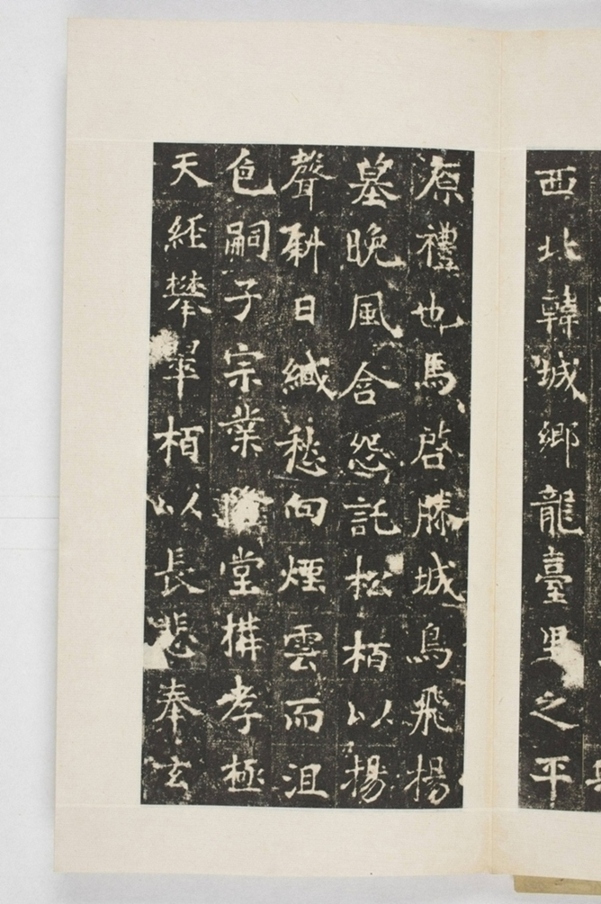 西北韓城鄉龍臺里之平
原禮也馬啓滕城鳥飛楊
墓晚風含怨託松栢以揚
聲斜日緘愁向煙雲而沮
色嗣子宗業隆堂構孝極
天經攀翠栢以長悲奉玄